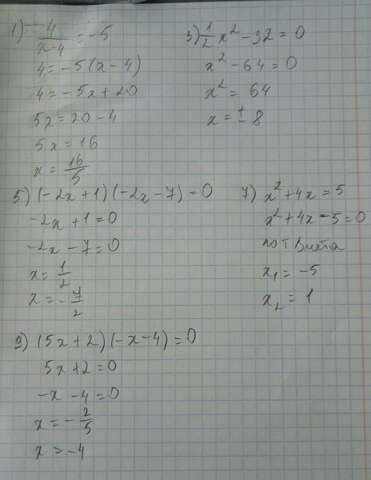 1) 4/(x-4) = -5
4 = -5(x-4)
4 = -5x + 20
5x = 20 - 4
5x = 16
x = 16/5
3) 1/2 x² - 32 = 0
x² - 64 = 0
x² = 64
x = ± 8
5) (-2x+1)(-2x-7) = 0
-2x + 1 = 0
-2x - 7 = 0
x = 1/2
x = -7/2
7) x² + 4x = 5
x² + 4x - 5 = 0
по т Виета
x₁ = -5
x₂ = 1
9) (5x+2)(-x-4) = 0
5x + 2 = 0
-x - 4 = 0
x = -2/5
x = -4